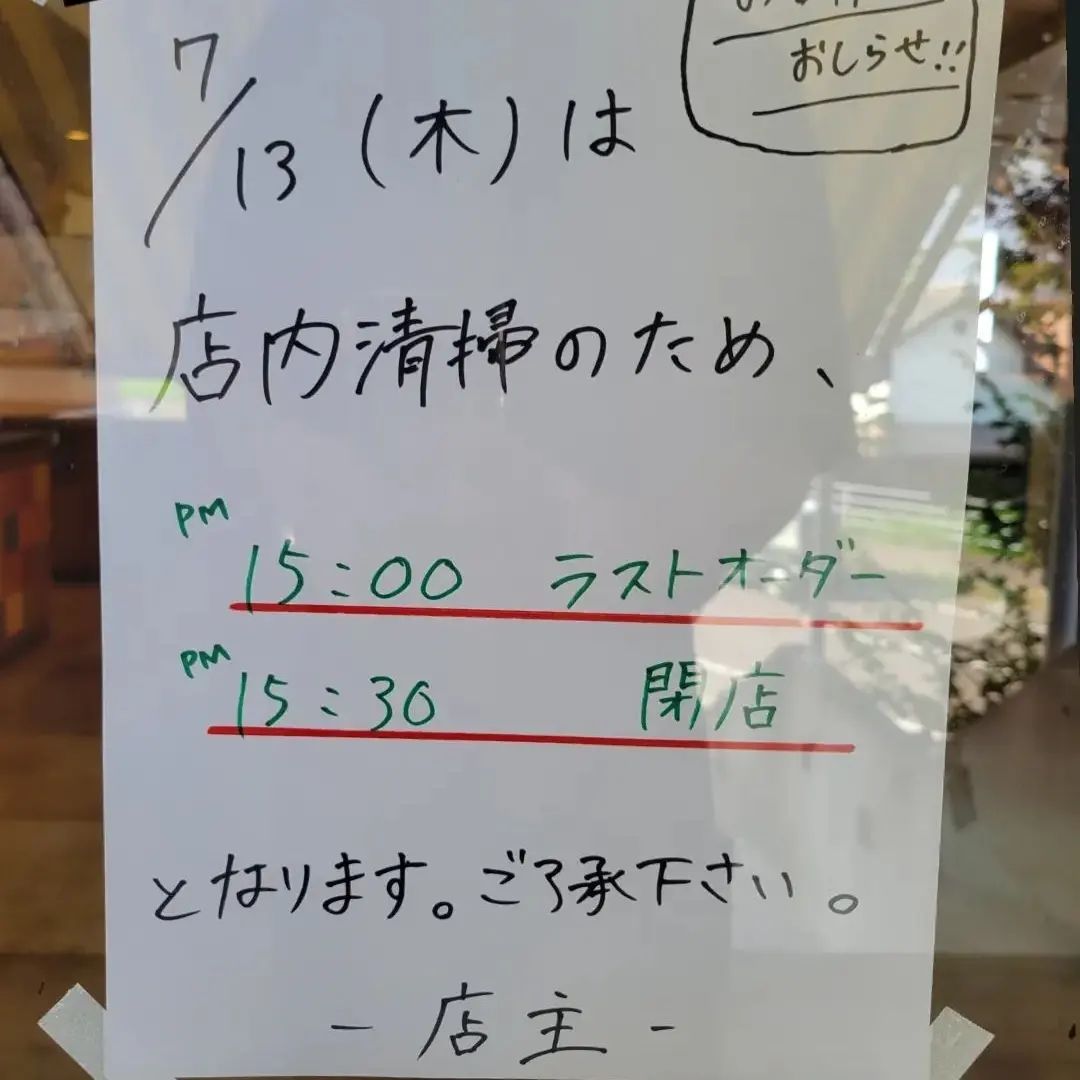 おしらせ!!
7/13(木)は
店内清掃のため、
PM 15:00 ラストオーダー
PM 15:30 閉店
となります。ご了承下さい。
- 店主 -